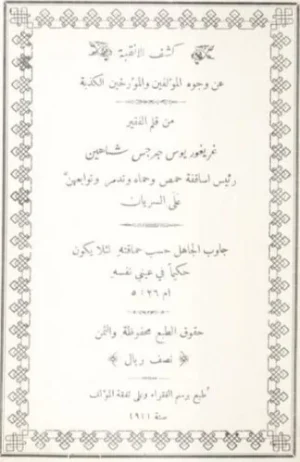 كشف الانقبة
عن وجوه المؤلفين والمؤرخين الكذبة
من قلم الفقير
غريغوريوس جرجس شاهين
رئيس اساقفة حمص وحماه وتدمر وتوابعهنّ
على السريان
جاوب الجاهل حسب حماقتهِ لئلا يكون
حكيماً في عيني نفسهِ
ام ٢٦: ٥
حقوق الطبع محفوظة والثمن
﴿ نصف ريال ﴾
طبع برسم الفقراء وعلى نفقة المؤلف
سنة ١٩١١